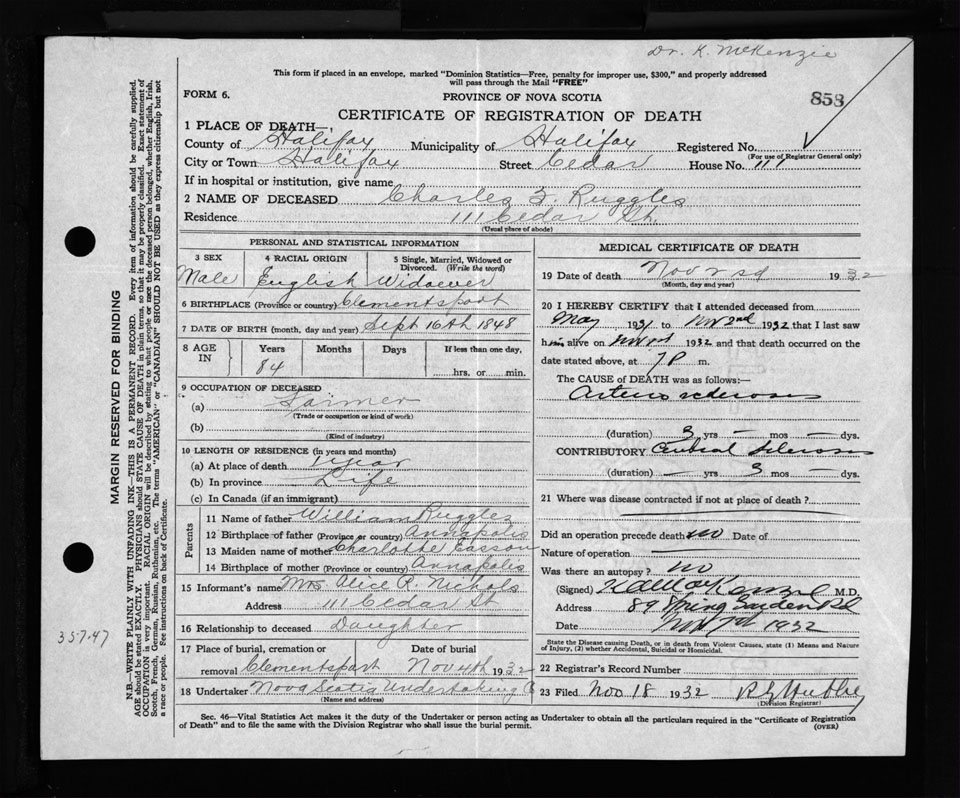 Dr. K. McKenzie
This form if placed in an envelope, marked "Dominion Statistics—Free, penalty for improper use, $300," and properly addressed
will pass through the Mail "FREE"
FORM 6.
PROVINCE OF NOVA SCOTIA
858
CERTIFICATE OF REGISTRATION OF DEATH
1 PLACE OF DEATH—
County of Halifax Municipality of Halifax Registered No.
(For use of Registrar General only)
City or Town Halifax Street Cedar House No. 111
If in hospital or institution, give name
2 NAME OF DECEASED Charles Z. Ruggles
Residence 111 Cedar St.
(Usual place of abode)
PERSONAL AND STATISTICAL INFORMATION
3 SEX 4 RACIAL ORIGIN 5 Single, Married, Widowed or Divorced. (Write the word)
Male English Widower
6 BIRTHPLACE (Province or country) Clementsport
7 DATE OF BIRTH (month, day and year) Sept 16th 1848
8 AGE IN Years Months Days If less than one day,
84
hrs. or min.
9 OCCUPATION OF DECEASED
(a) Farmer
(Trade or occupation or kind of work)
(b)
(Kind of industry)
10 LENGTH OF RESIDENCE (in years and months)
(a) At place of death 1 year
(b) In province Life
(c) In Canada (if an immigrant)
Parents
11 Name of father William Ruggles
12 Birthplace of father (Province or country) Annapolis
13 Maiden name of mother Charlotte
14 Birthplace of mother (Province or country) Annapolis
15 Informant's name Mrs Alice R. Nichols
Address 111 Cedar St
16 Relationship to deceased Daughter
17 Place of burial, cremation or Date of burial
removal Clementsport Nov 4th 1932
18 Undertaker Nova Scotia Undertaking Co
(Name and address)
MEDICAL CERTIFICATE OF DEATH
19 Date of death Nov 2nd 1932
(Month, day and year)
20 I HEREBY CERTIFY that I attended deceased from
May 1931 to Nov 2nd 1932 that I last saw
him alive on Nov 1932 and that death occurred on the
date stated above, at 7 P m.
The CAUSE OF DEATH was as follows:—
Arterio sclerosis
(duration) 3 yrs — mos — dys.
CONTRIBUTORY Cerebral Sclerosis
(duration) — yrs 3 mos — dys.
21 Where was disease contracted if not at place of death?
Did an operation precede death no Date of
Nature of operation
Was there an autopsy? no
(Signed) M.D.
Address 89 Spring Garden Rd
Date Nov 1932
State the Disease causing Death, or in death from Violent Causes, state (1) Means and Nature of Injury, (2) whether Accidental, Suicidal or Homicidal.
22 Registrar's Record Number
23 Filed Nov 18 1932
(Division Registrar)
Sec. 46—Vital Statistics Act makes it the duty of the Undertaker or person acting as Undertaker to obtain all the particulars required in the "Certificate of Registration
of Death" and to file the same with the Division Registrar who shall issue the burial permit.
(OVER)
MARGIN RESERVED FOR BINDING
N.B.—WRITE PLAINLY WITH UNFADING INK—THIS IS A PERMANENT RECORD. Every item of information should be carefully supplied.
AGE should be stated EXACTLY. PHYSICIANS should STATE CAUSE OF DEATH in plain terms, so that it may be properly classified. Exact statement of
OCCUPATION is very important. RACIAL ORIGIN will be described by stating to what people or race the deceased person belonged, whether English, Irish,
Scotch, French, German, Russian, Ruthenian, etc. The terms "AMERICAN" or "CANADIAN" SHOULD NOT BE USED as they express citizenship but not
a race or people. See instructions on back of Certificate.
35747